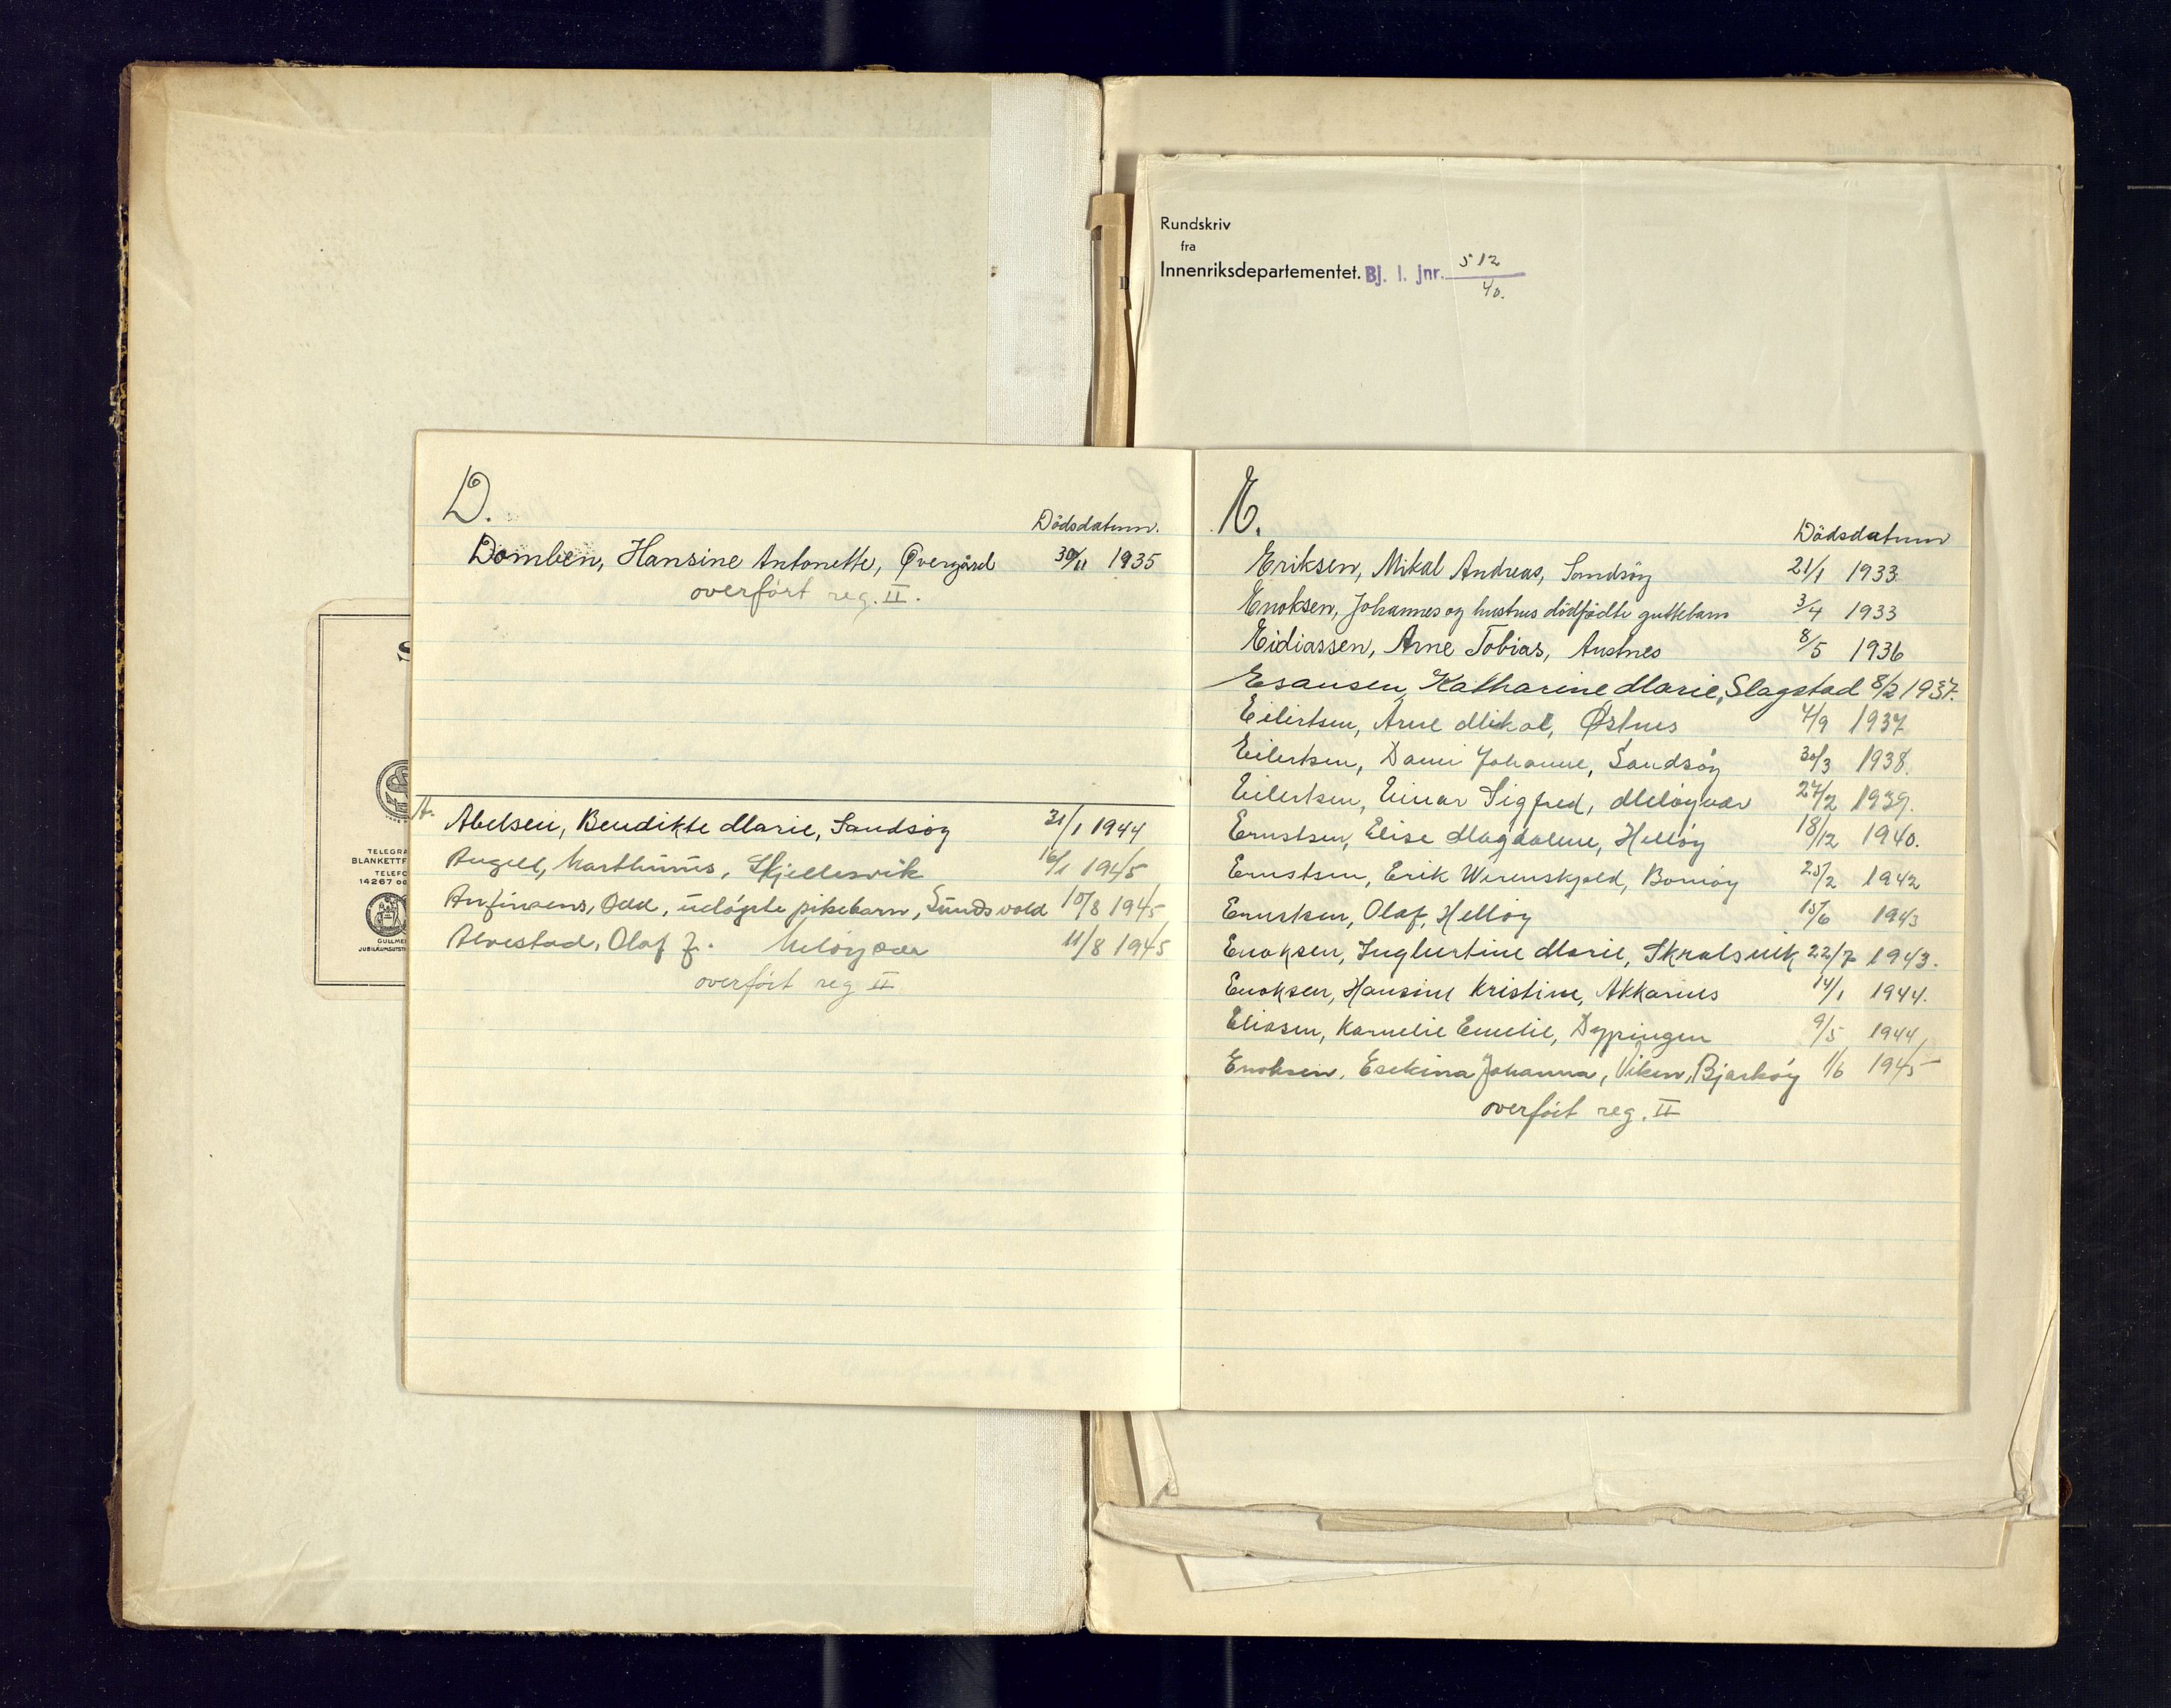 Rundskriv
fra
Innenriksdepartementet. Bj. l. jnr. 512
40.
S
TELEGRA
BLANKETTF
TELEFO
14267 oc
GULLME
JUBILÆUMSUTST
D.
Dödsdatum.
Domben, Hansine Antonette, Øvergård 30/11 1935
overfört reg. II.
A.
Abelsen, Bendikte Marie, Sandsöy 31/1 1944
Angell, Marthinus, Skjellesvik 16/1 1945
Anfinsens, Odd, udöpte pikebarn, Sundsvold 10/8 1945
Alvestad, Olaf J. Melöyvær 11/8 1945
overfört reg II
E.
Dödsdatum
Eriksen, Mikal Andreas, Sandsöy 21/1 1933
Enoksen, Johannes og hustrus dödfödte guttebarn 3/4 1933
Eidiassen, Arne Tobias, Austnes 8/5 1936
Esausen, Katharine Marie, Slagstad 8/2 1937.
Eilertsen, Arne Mikal, Østnes 4/9 1937
Eilertsen, Dani Johanne, Sandsöy 30/3 1938.
Eilertsen, Einar Sigfred, Melöyvær 27/2 1939.
Ernstsen, Elise Magdalene, Hellöy 18/12 1940.
Ernstsen, Erik Werenskjold, 25/2 1942
Ernstsen, Olaf, Hellöy 15/6 1943
Enoksen, Ingbertine Marie, Skralsvik 22/7 1943.
Enoksen, Hansine Kristine, Akkarnes 14/1 1944.
Eliasen, Kornelie Emelie, Dypingen 9/5 1944
Enoksen, Esekina Johanna, Viken, Bjarköy 1/6 1945
overfört reg. II